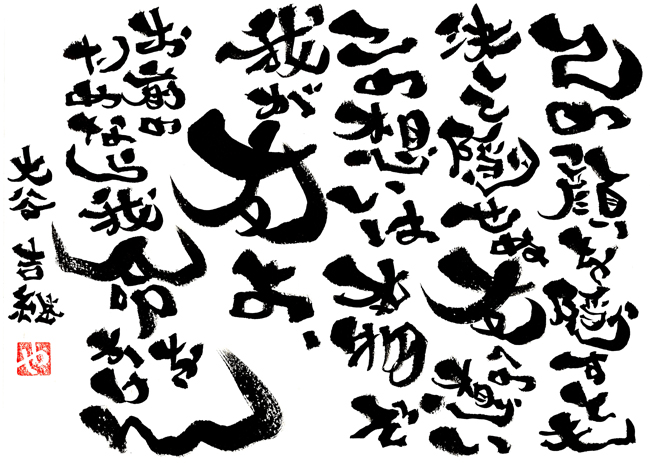 己の顔を隠すとも
決して隠せぬ友への想い
この想いは本物ぞ
我が友よ、
お前の
ためなら我命をかけん
大谷 吉継